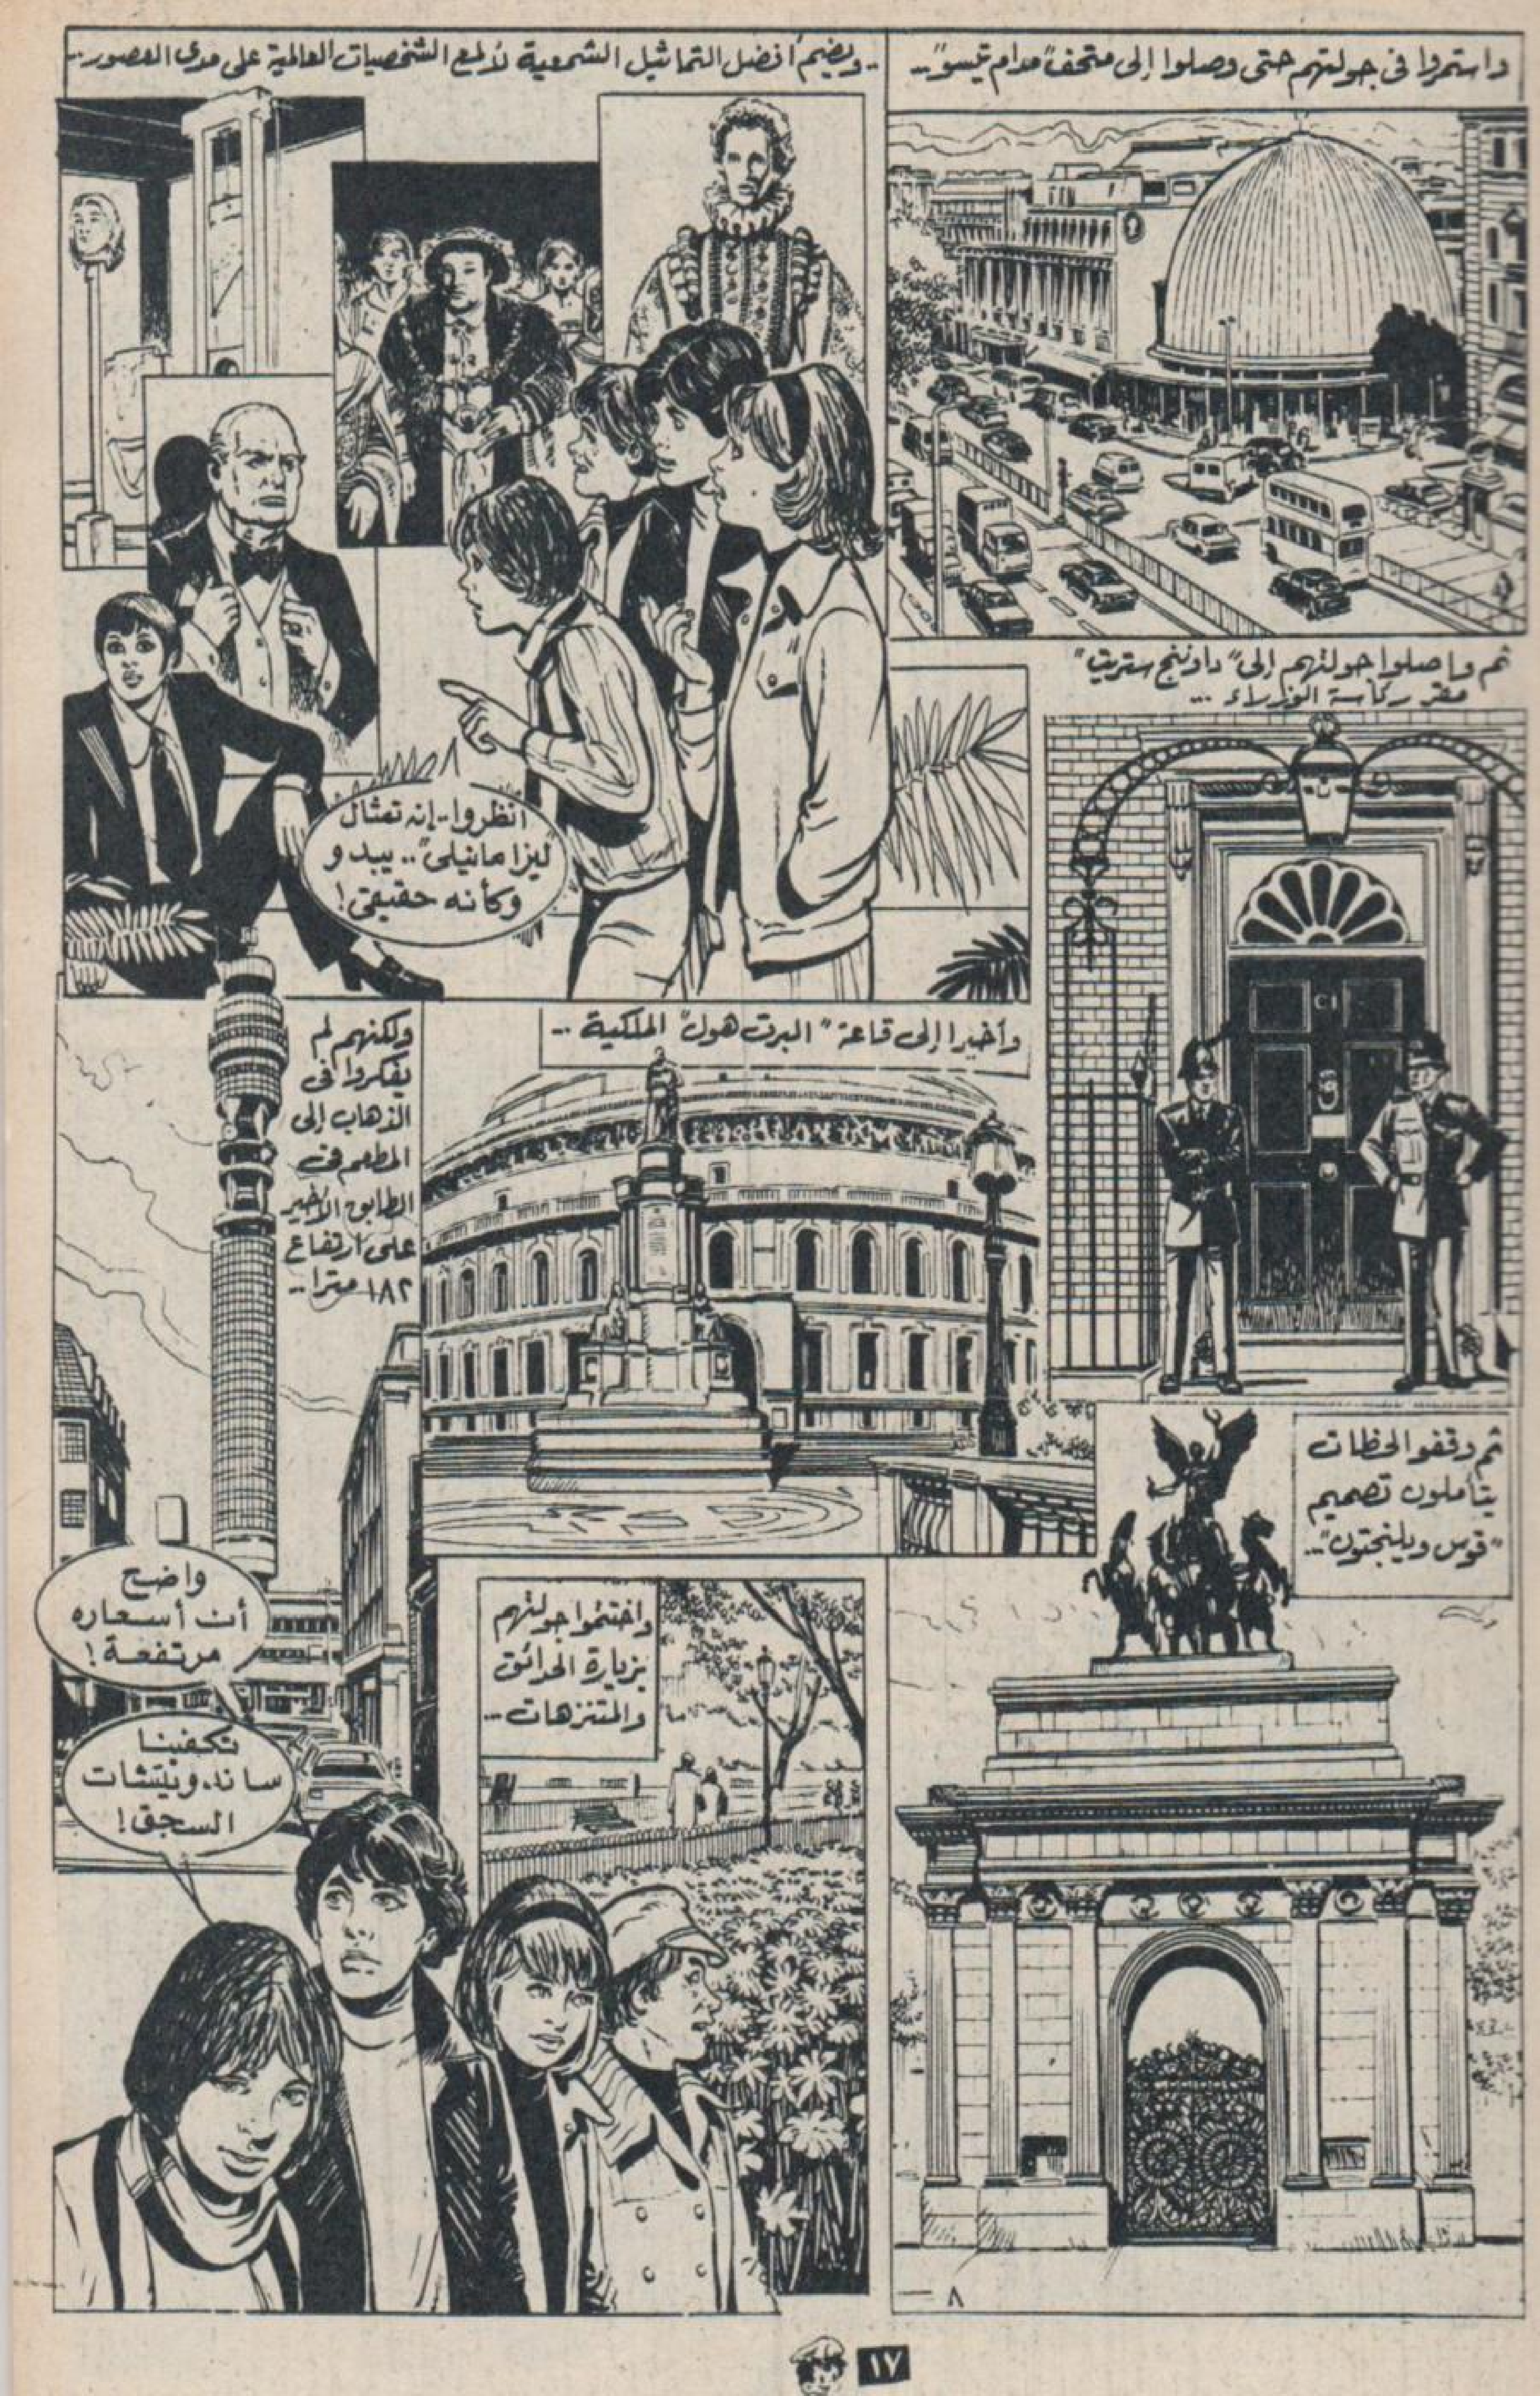 واستمروا فى جولتهم حتى وصلوا إلى متحف "مدام تيسو"..
..ويضم أفضل التماثيل الشمعية لألمع الشخصيات العالمية على مدى العصور..
أنظروا..إنه تمثال
"ليزا مانيلى".. يبدو
وكأنه حقيقى!
ثم واصلوا جولتهم إلى "داوننج ستريت"
مقر رئاسة الوزراء ...
وأخيرا إلى قاعة "البرت هول" الملكية ..
ولكنهم لم
يفكروا فى
الذهاب إلى
المطعم فى
الطابق الأخير
على ارتفاع
١٨٢ مترا..
ثم وقفوا لحظات
يتأملون تصميم
"قوس ويلينجتون"..
واضح
أن أسعاره
مرتفعة!
تكفينا
ساندويتشات
السجق!
واختتموا جولتهم
بزيارة الحدائق
والمتنزهات ...
٨
١٧